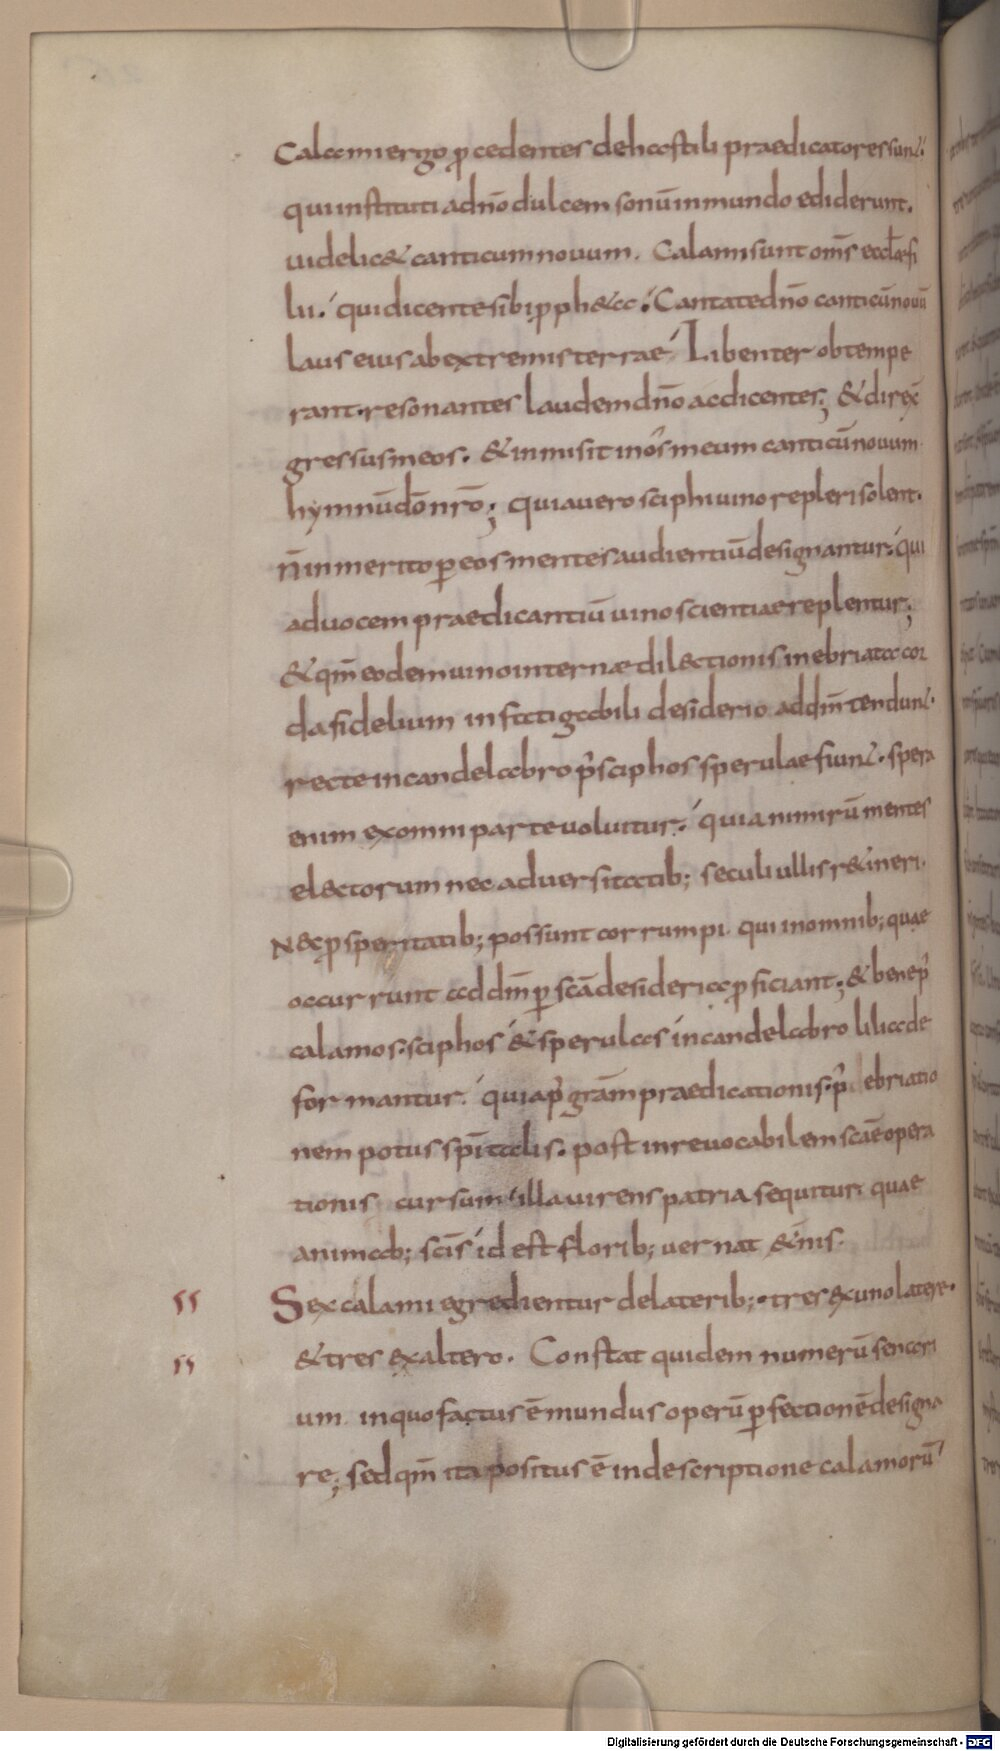 Calami ergo ꝓcedentes de hastili praedicatores sunt.
qui instituti ad nō dulcem sonū in mundo ediderunt.
uidelic& canticum nouum. Calami sunt om̄s eccłae fi
lii. qui dicente sibi ꝓph&a. Cantate dn̄o canticū nouū
laus eius ab extremis terrae. Libenter obtempe
rant. resonantes laudem dn̄o ac dicentes; & direx̄
gressus meos. & inmisit in ōs meum canticū nouum
hymnū dō nrō; Quia uero sciphi uino repleri solent.
n̄ inmerito ꝑ eos mentes audientiū designantur. qui
ad uocem praedicantiū uino scientiae replentur;
& qm̄ eodem uino internae dilectionis inebriata cor
da fidelium infatigabili desiderio ad dm̄ tendunt.
recte in candelabro p̄ sciphos sperulae fiunt. spera
enim ex omni parte uoluitur. quia nimirū mentes
electorum nec aduersitatib; seculi ullis r&ineri.
Nec ꝓsperitatib; possunt corrumpi. qui in omnib; quae
occurrunt ad dm̄ ꝑ scā desideria ꝓficiant; & bene p̄
calamos. sciphos & sperulas in candelabro lilia de
formantur. quia p̄ grām praedicationis. p̄ ebriatio
nem potus spītalis. post inreuocabilem scāe opera
tionis cursum illa uirens patria sequitur quae
animab; scīs id est florib; uernat &nis.
55 Sex calami egredientur de laterib; tres ex uno latere.
55 & tres ex altero. Constat quidem numerū senari
um. in quo factus ē mundus operū ꝑfectionē designa
re; sed qm̄ ita positus ē in descriptione calamorū
Digitalisierung gefördert durch die Deutsche Forschungsgemeinschaft - DFG